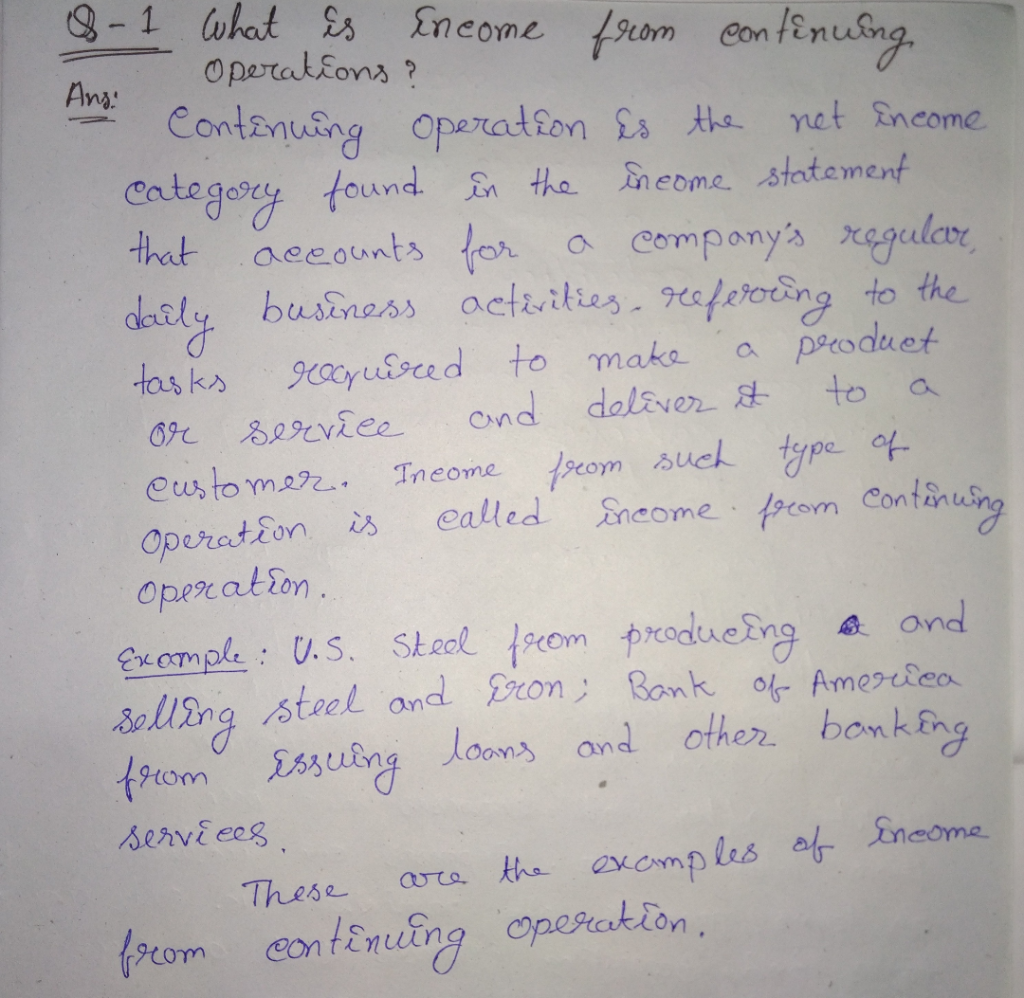 Q-1 What is income from continuing
operations?
Ans:
Continuing operation is the net income
category found in the income statement
that accounts for a company's regular,
daily business activities. referring to the
tasks required to make a product
or service and deliver it to a
customer. Income from such type of
operation is called income from continuing
operation.
Example: U.S. Steel from producing and
selling steel and iron; Bank of America
from issuing loans and other banking
services.
These are the examples of income
from continuing operation.